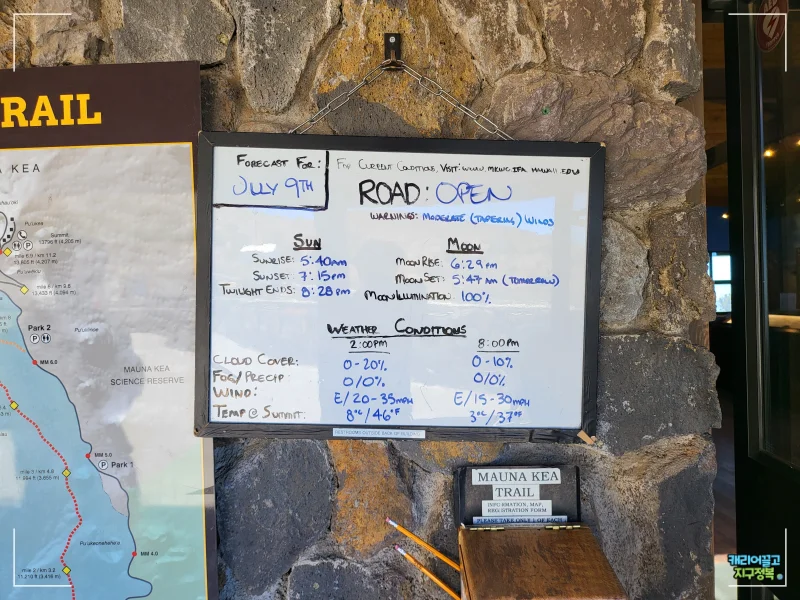 RAIL
KEA
Pu'ukea
Summit
13796 ft (4,205 m)
mile 6.9 / km 11.2
mile 6 / km 9.6
Park 2
MM 6.0
MAUNA KEA
SCIENCE RESERVE
MM 5.0
Park 1
mile 3 / km 4.8
MM 4.0
mile 2 / km 3.2
FORECAST FOR:
JULY 9TH
FOR CURRENT CONDITIONS, VISIT: WWW.MKWC.IFA.HAWAII.EDU
ROAD: OPEN
WARNINGS: MODERATE (TAPERING) WINDS
SUN
SUNRISE: 5:40AM
SUNSET: 7:15PM
TWILIGHT ENDS: 8:28PM
MOON
MOON RISE: 6:29PM
MOON SET: 5:47AM (TOMORROW)
MOON ILLUMINATION 100%
WEATHER CONDITIONS
2:00PM 8:00PM
CLOUD COVER: 0-20% 0-10%
FOG/PRECIP: 0/0% 0/0%
WIND: E/20-35MPH E/15-30MPH
TEMP @ SUMMIT: 8°C/46°F 3°C/37°F
MAUNA KEA
TRAIL
INFORMATION, MAP,
REGISTRATION FORM
PLEASE TAKE ONLY 1 OF EACH
캐리어끌고
지구정복